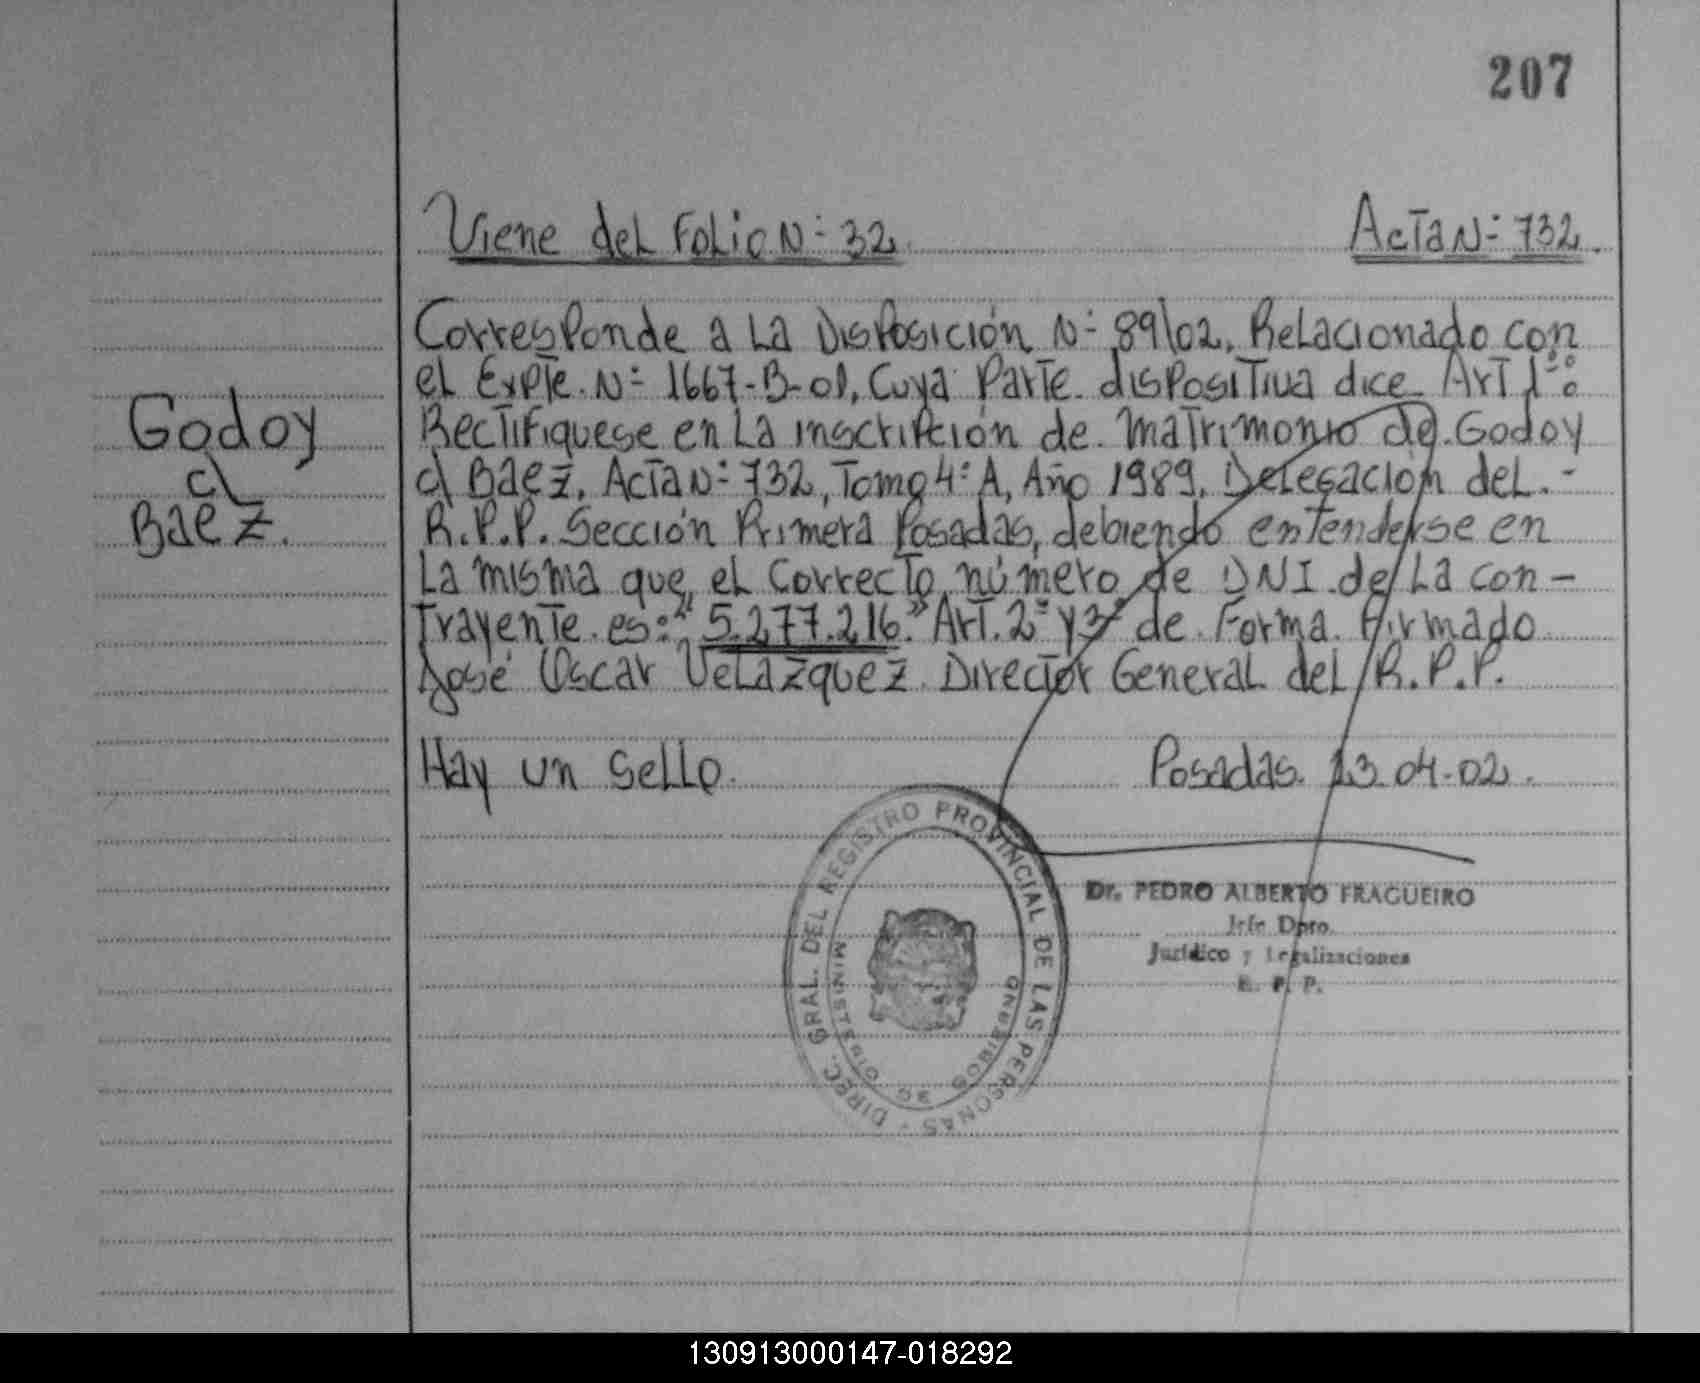 207
Viene del Folio N= 32.
Acta N= 732.
Godoy
c\
Baez.
Corresponde a La Disposición N= 89\02, Relacionado con
el Expte. N= 1667-B-01, Cuya Parte dispositiva dice Art 1=:
Rectifiquese en La inscripción de Matrimonio de Godoy
c\ Baez, Acta N= 732, Tomo 4= A, Año 1989, Delegación del.-
R.P.P. Sección Primera Posadas, debiendo entenderse en
La misma que, el Correcto número de DNI de La con-
trayente es: "5.277.216." Art. 2= y 3= de Forma. Firmado
José Oscar Velazquez Director General del R.P.P.
Hay un Sello.
Posadas. 23.04-02.
DIREC. GRAL. DEL REGISTRO PROVINCIAL DE LAS PERSONAS -
MINISTERIO DE GOBIERNO
Dr. PEDRO ALBERTO FRAGUEIRO
Jefe Dpto.
Jurídico y Legalizaciones
R. P. P.
130913000147-018292